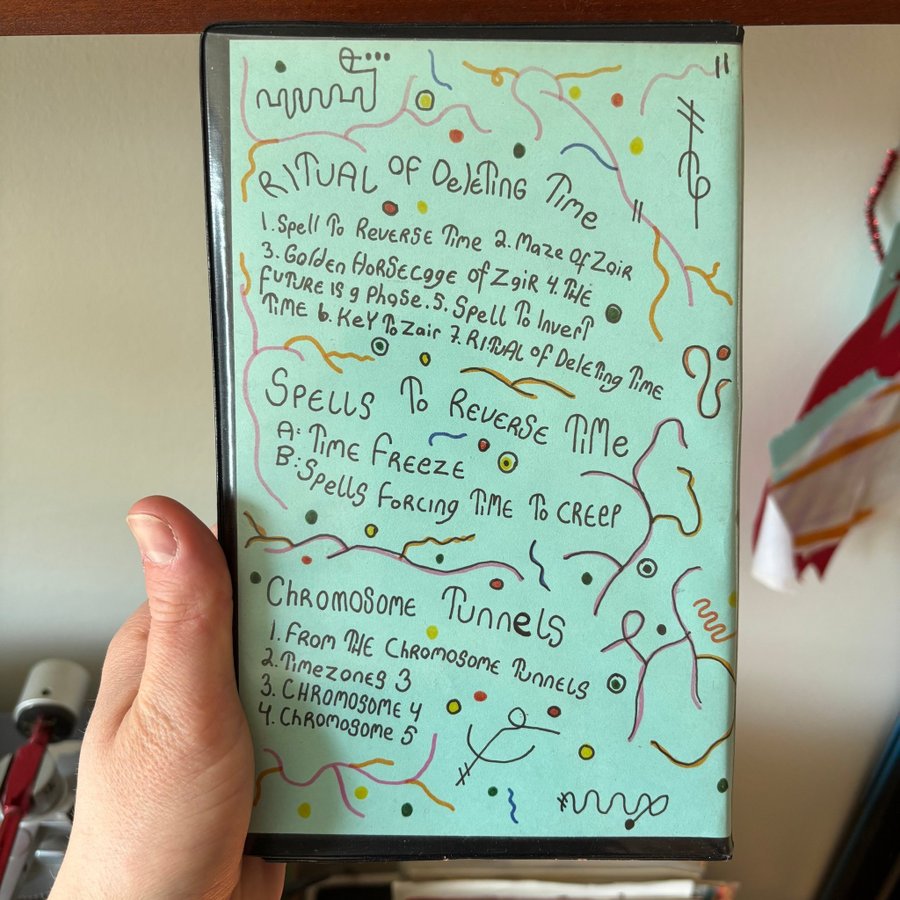 RITUAL OF DeleTING Time
1. Spell To ReveRSe Time 2. Maze Of Zair
3. Golden HoRSecage of Zair 4. THE
FUTURE IS a Phase. 5. Spell To InveRT
TIME 6. Key To Zair 7. RITUAL of DeleTing TIME
SPELLS To ReVeRSe TIMe
A: TIME FREEZE
B: Spells Forcing TIME To CReep
CHRoMoSome Tunnels
1. FRom THE CHRomosome Tunnels
2. Timezones 3
3. CHRomosome 4
4. CHRomosome 5